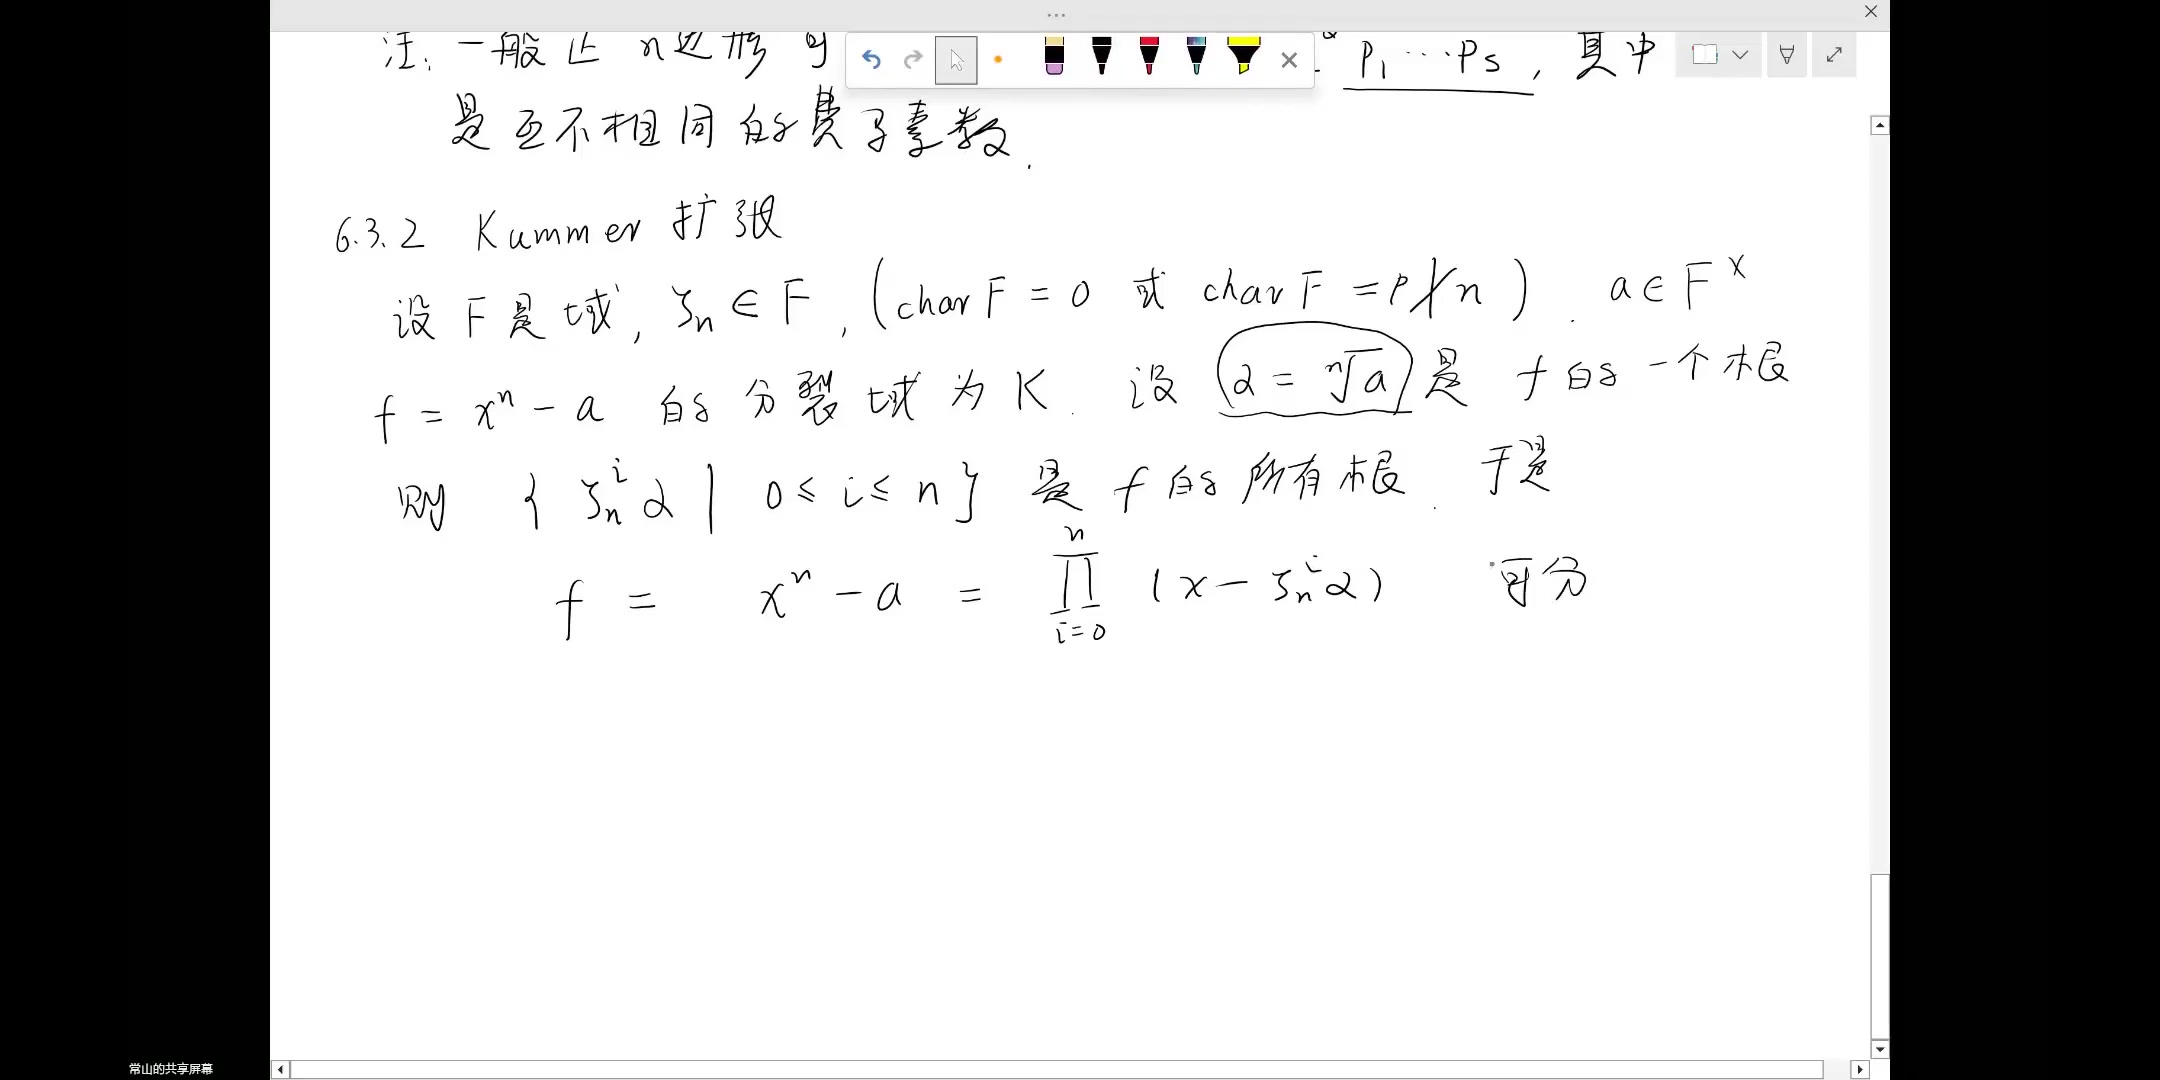 注: 一般正 n 边形 可 p₁ ⋯ pₛ, 其中
是互不相同的费马素数.
6.3.2 Kummer 扩张
设 F 是域, ζₙ ∈ F, (char F = 0 或 char F = p ∤ n). a ∈ F^×
f = xⁿ - a 的分裂域为 K. 设 α = ⁿ√a 是 f 的一个根
则 { ζₙⁱ α | 0 ≤ i ≤ n } 是 f 的所有根. 于是
f = xⁿ - a = ∏_{i=0}^{n} (x - ζₙⁱ α) 可分
常山的共享屏幕